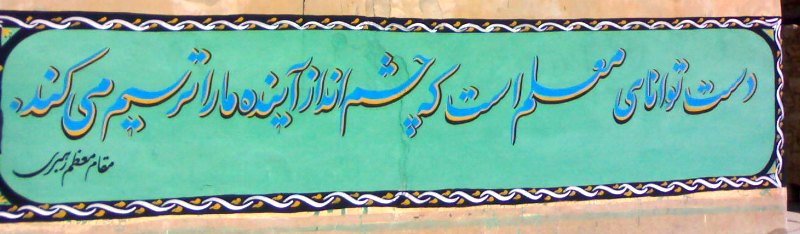 دست توانای معلم است که چشم انداز آینده ما را ترسیم می کند.
مقام معظم رهبری